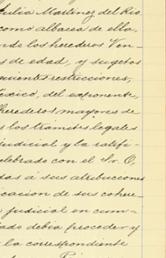 Julia Martinez del Rio
como albacea de ella,
los herederos
s de edad, y sugetos
restricciones,
exico, del exponente,
herederos mayores de
los tramites legales
judicial y la ratifi-
lebrado con el Sr. O.
sas á sus atribuciones
cacion de sus cohere-
judicial en cum-
ado debia proceder y
la correspondiente